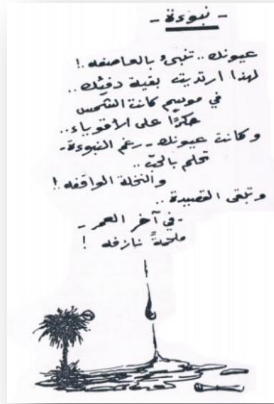 - نبوءة -
عيونك .. تنبئ بالعاصفه !
لهذا ارتديت بقية دفئك ..
في موسم كانت الشمس
حكرًا على الأقوياء ..
وكانت عيونك - رغم النبوءة -
تحلم بالحب ..
والنخلة الواقفه !
وتبقى القصيدة ..
- في آخر العمر -
ملحمةً نازفه !